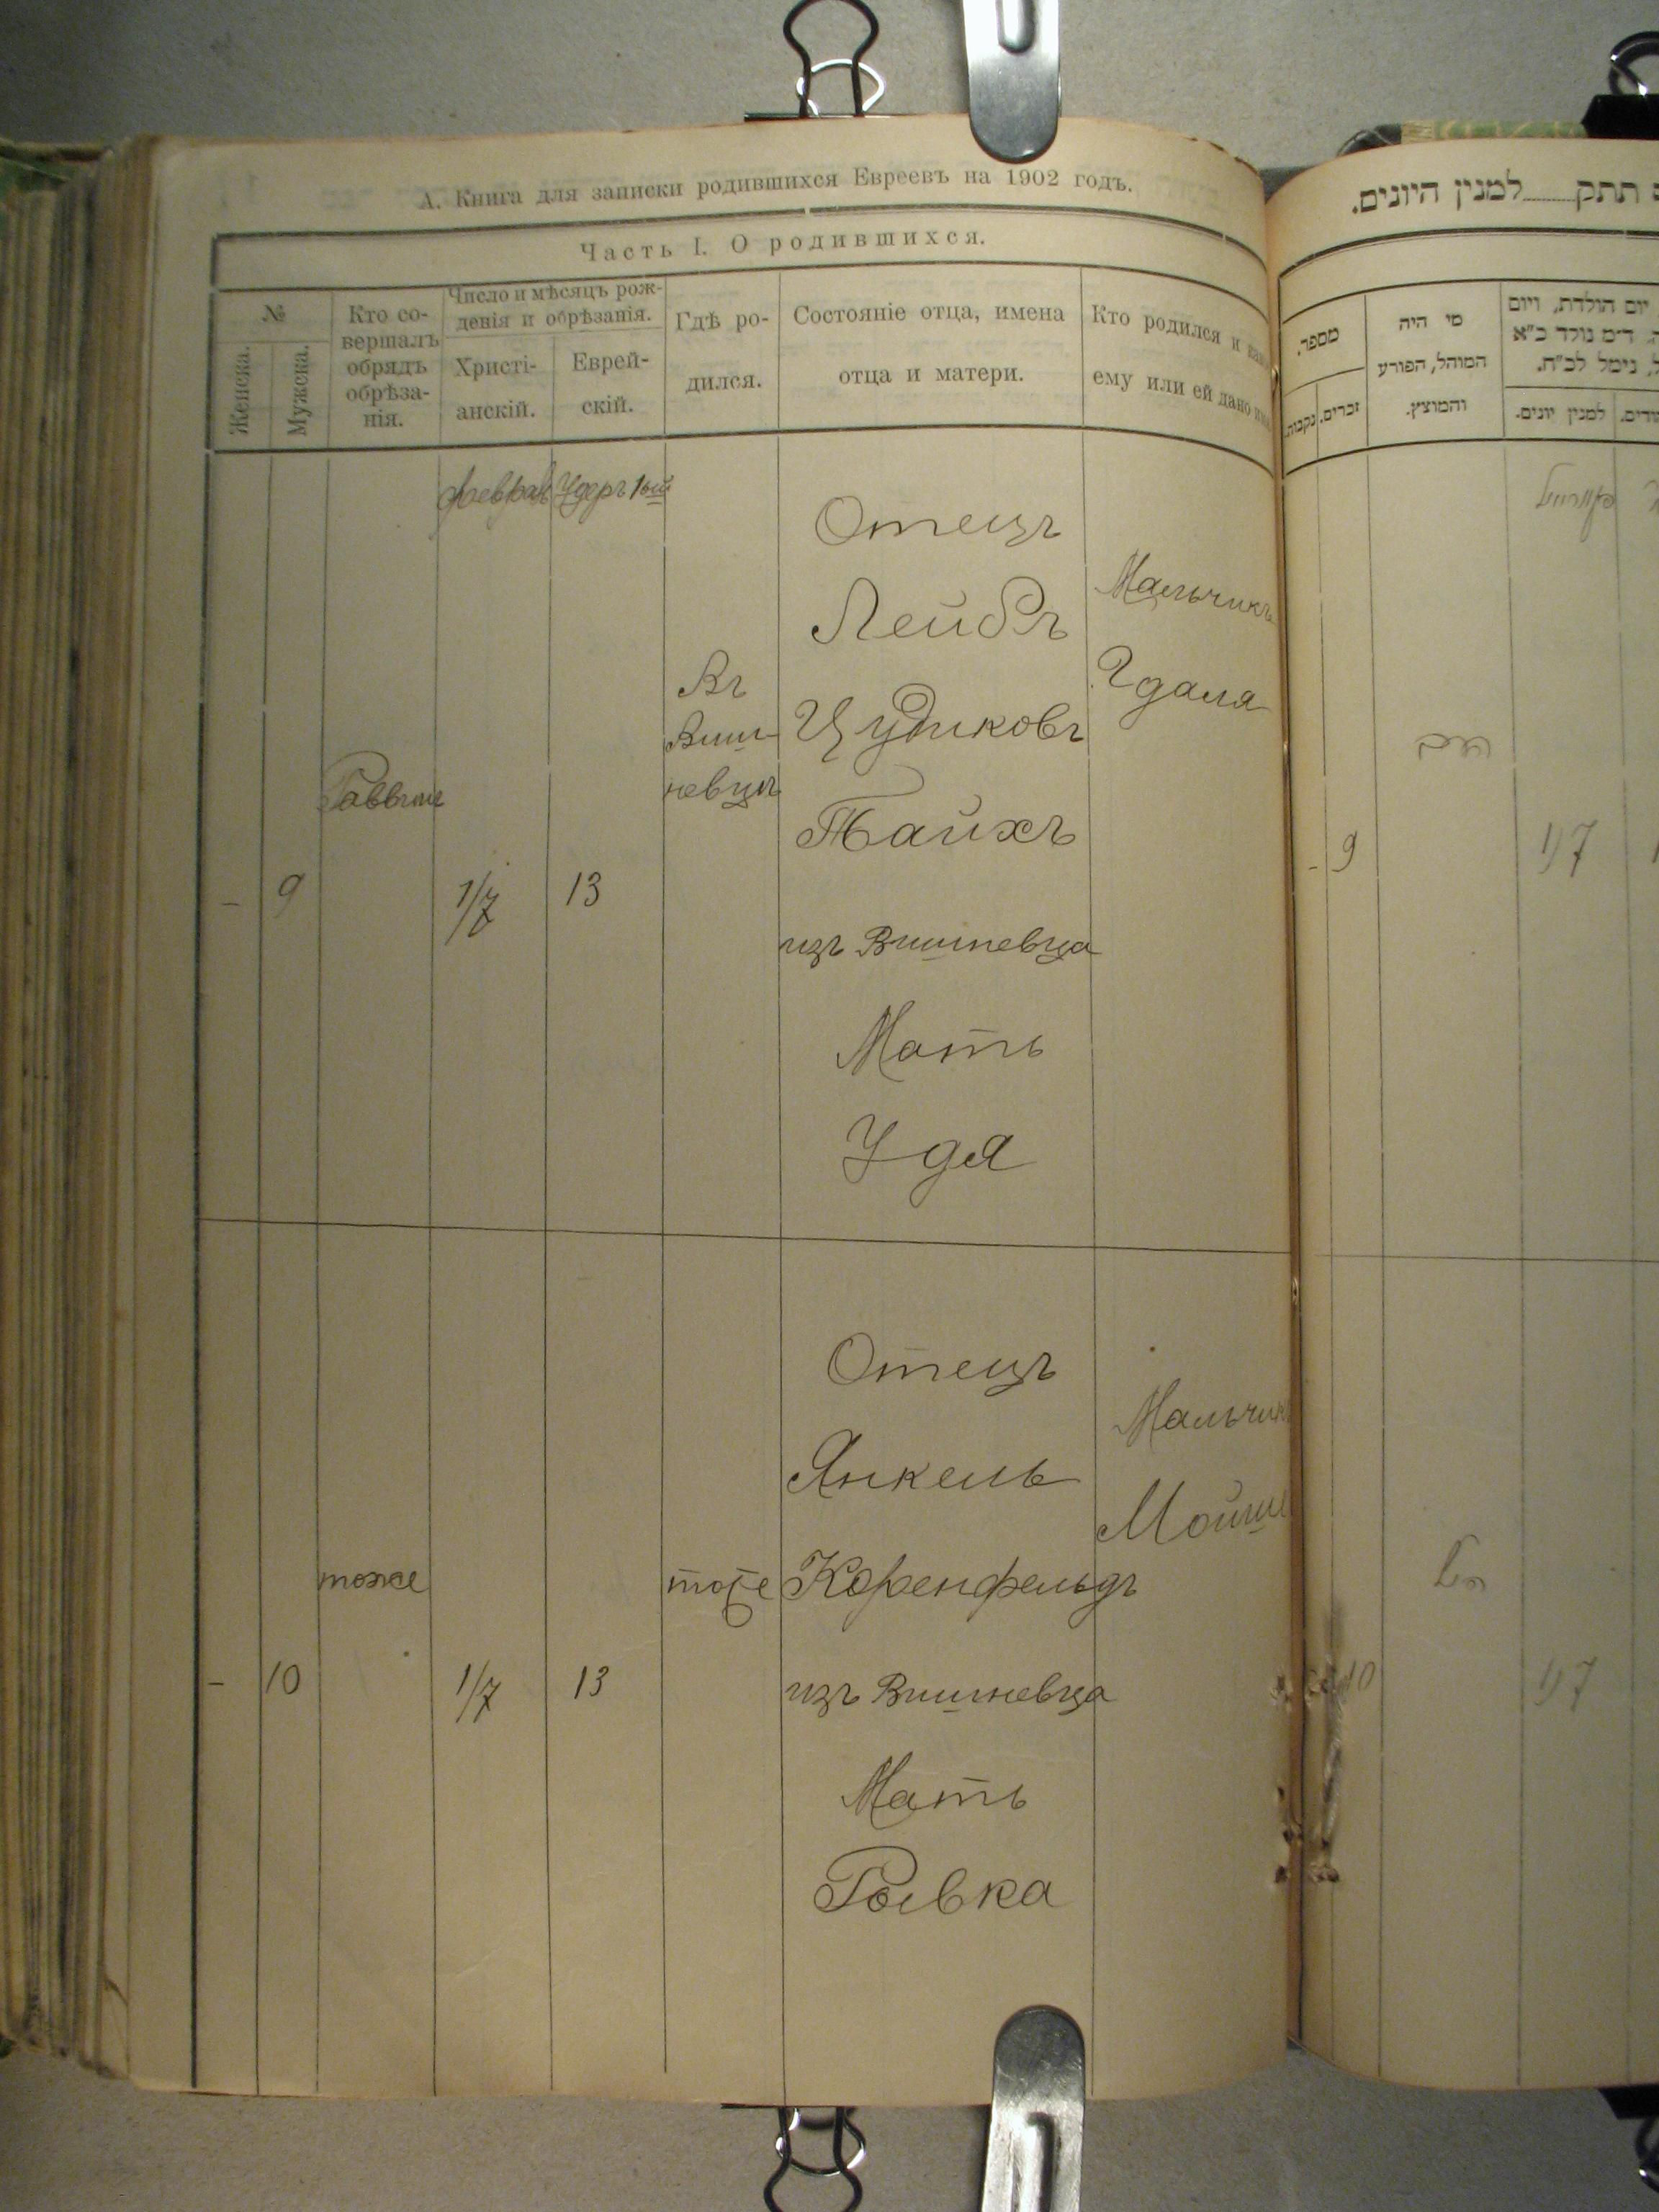 А. Книга для записки родившихся Евреевъ на 1902 годъ.
Часть I. О родившихся.
№
Женска.
Мужска.
Кто со-
вершалъ
обрядъ
обрѣза-
нія.
Число и мѣсяцъ рож-
денія и обрѣзанія.
Христі-
анскій.
Еврей-
скій.
Гдѣ ро-
дился.
Состояніе отца, имена
отца и матери.
Кто родился и
ему или ей дано
Февраль
Удеръ 1ый
- 9
Раввинъ
1/7
13
Въ
Виш-
невцѣ
Отецъ
Лейбъ
Цудиковъ
Тайхъ
изъ Вишневца
Мать
Удя
Мальчикъ
Гдаля
- 10
тоже
1/7
13
тоже
Отецъ
Янкель
Коренфельдъ
изъ Вишневца
Мать
Рывка
Мальчик
Мойш
תתק למנין היונים.
מספר.
נקבות.
זכרים.
מי היה
המוהל, הפורע
והמוצץ.
יום הולדת, ויום
ד״מ נולד כ״א
נימל לכ״ח.
למנין יונים.
- 9
1/7
10
1/7